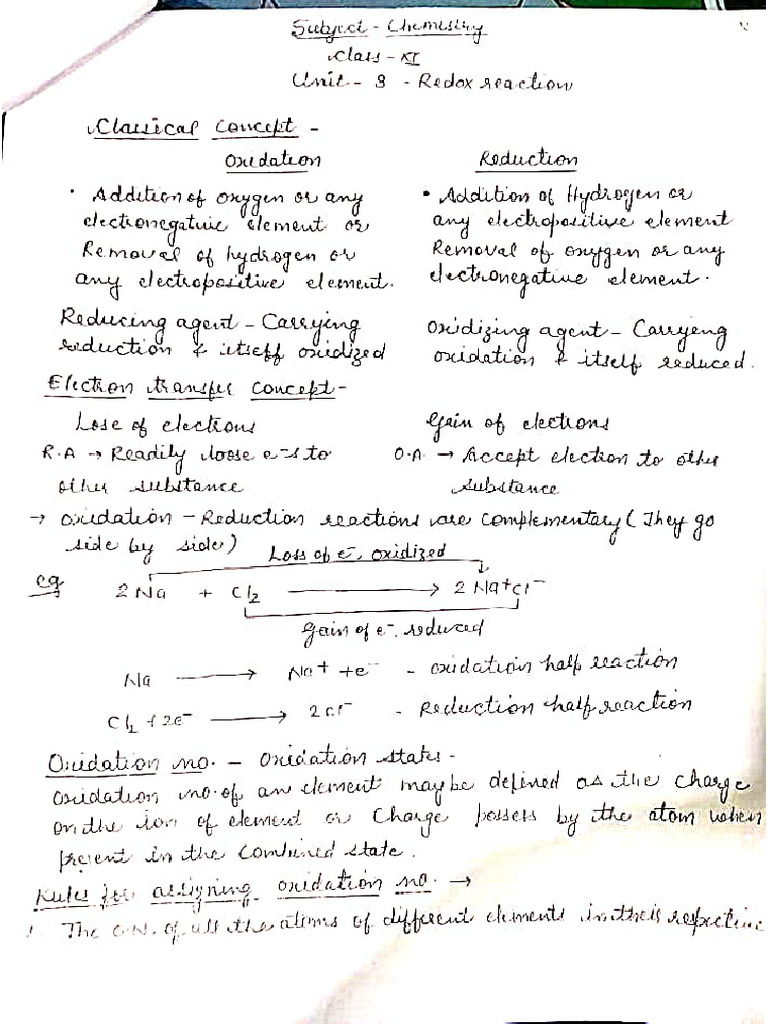 Subject - Chemistry
Class - XI
Unit - 8 - Redox reaction
Classical Concept -
Oxidation
Reduction
• Addition of oxygen or any
electronegative element or
Removal of hydrogen or
any electropositive element.
• Addition of Hydrogen or
any electropositive element
Removal of oxygen or any
electronegative element.
Reducing agent - Carrying
reduction & itself oxidized
Oxidizing agent - Carrying
oxidation & itself reduced.
Electron transfer concept -
Lose of electrons
Gain of electrons
R.A → Readily loose e-s to
other substance
O.A. → Accept electron to other
substance
→ Oxidation - Reduction reactions are complementary (They go
side by side)
Loss of e-, oxidized
eg 2 Na + Cl2 → 2 Na+Cl-
Gain of e-, reduced
Na → Na+ + e- - oxidation half reaction
Cl2 + 2e- → 2Cl- - Reduction half reaction
Oxidation no. - Oxidation states -
Oxidation no. of an element maybe defined as the charge
on the ion of element or Charge possess by the atom when
present in the combined state.
Rules for assigning oxidation no. →
1. The O.N. of all the atoms of different elements in their respective